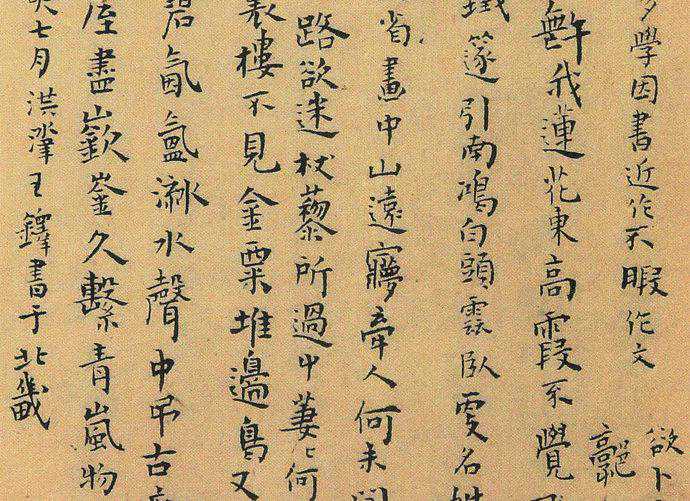 學因書近作不暇作文
欲卜
我蓮花東高霞不覺
鐵篴引南鴻白頭雲臥名姓
省畫中山遠夢牽人何未問
路欲迷杖藜所過中萋〻何
樓不見金粟堆邊鳥又
碧氤氳水聲中弔古
盡嶔崟久繫青嵐物
七月洪王鐸書于北畿